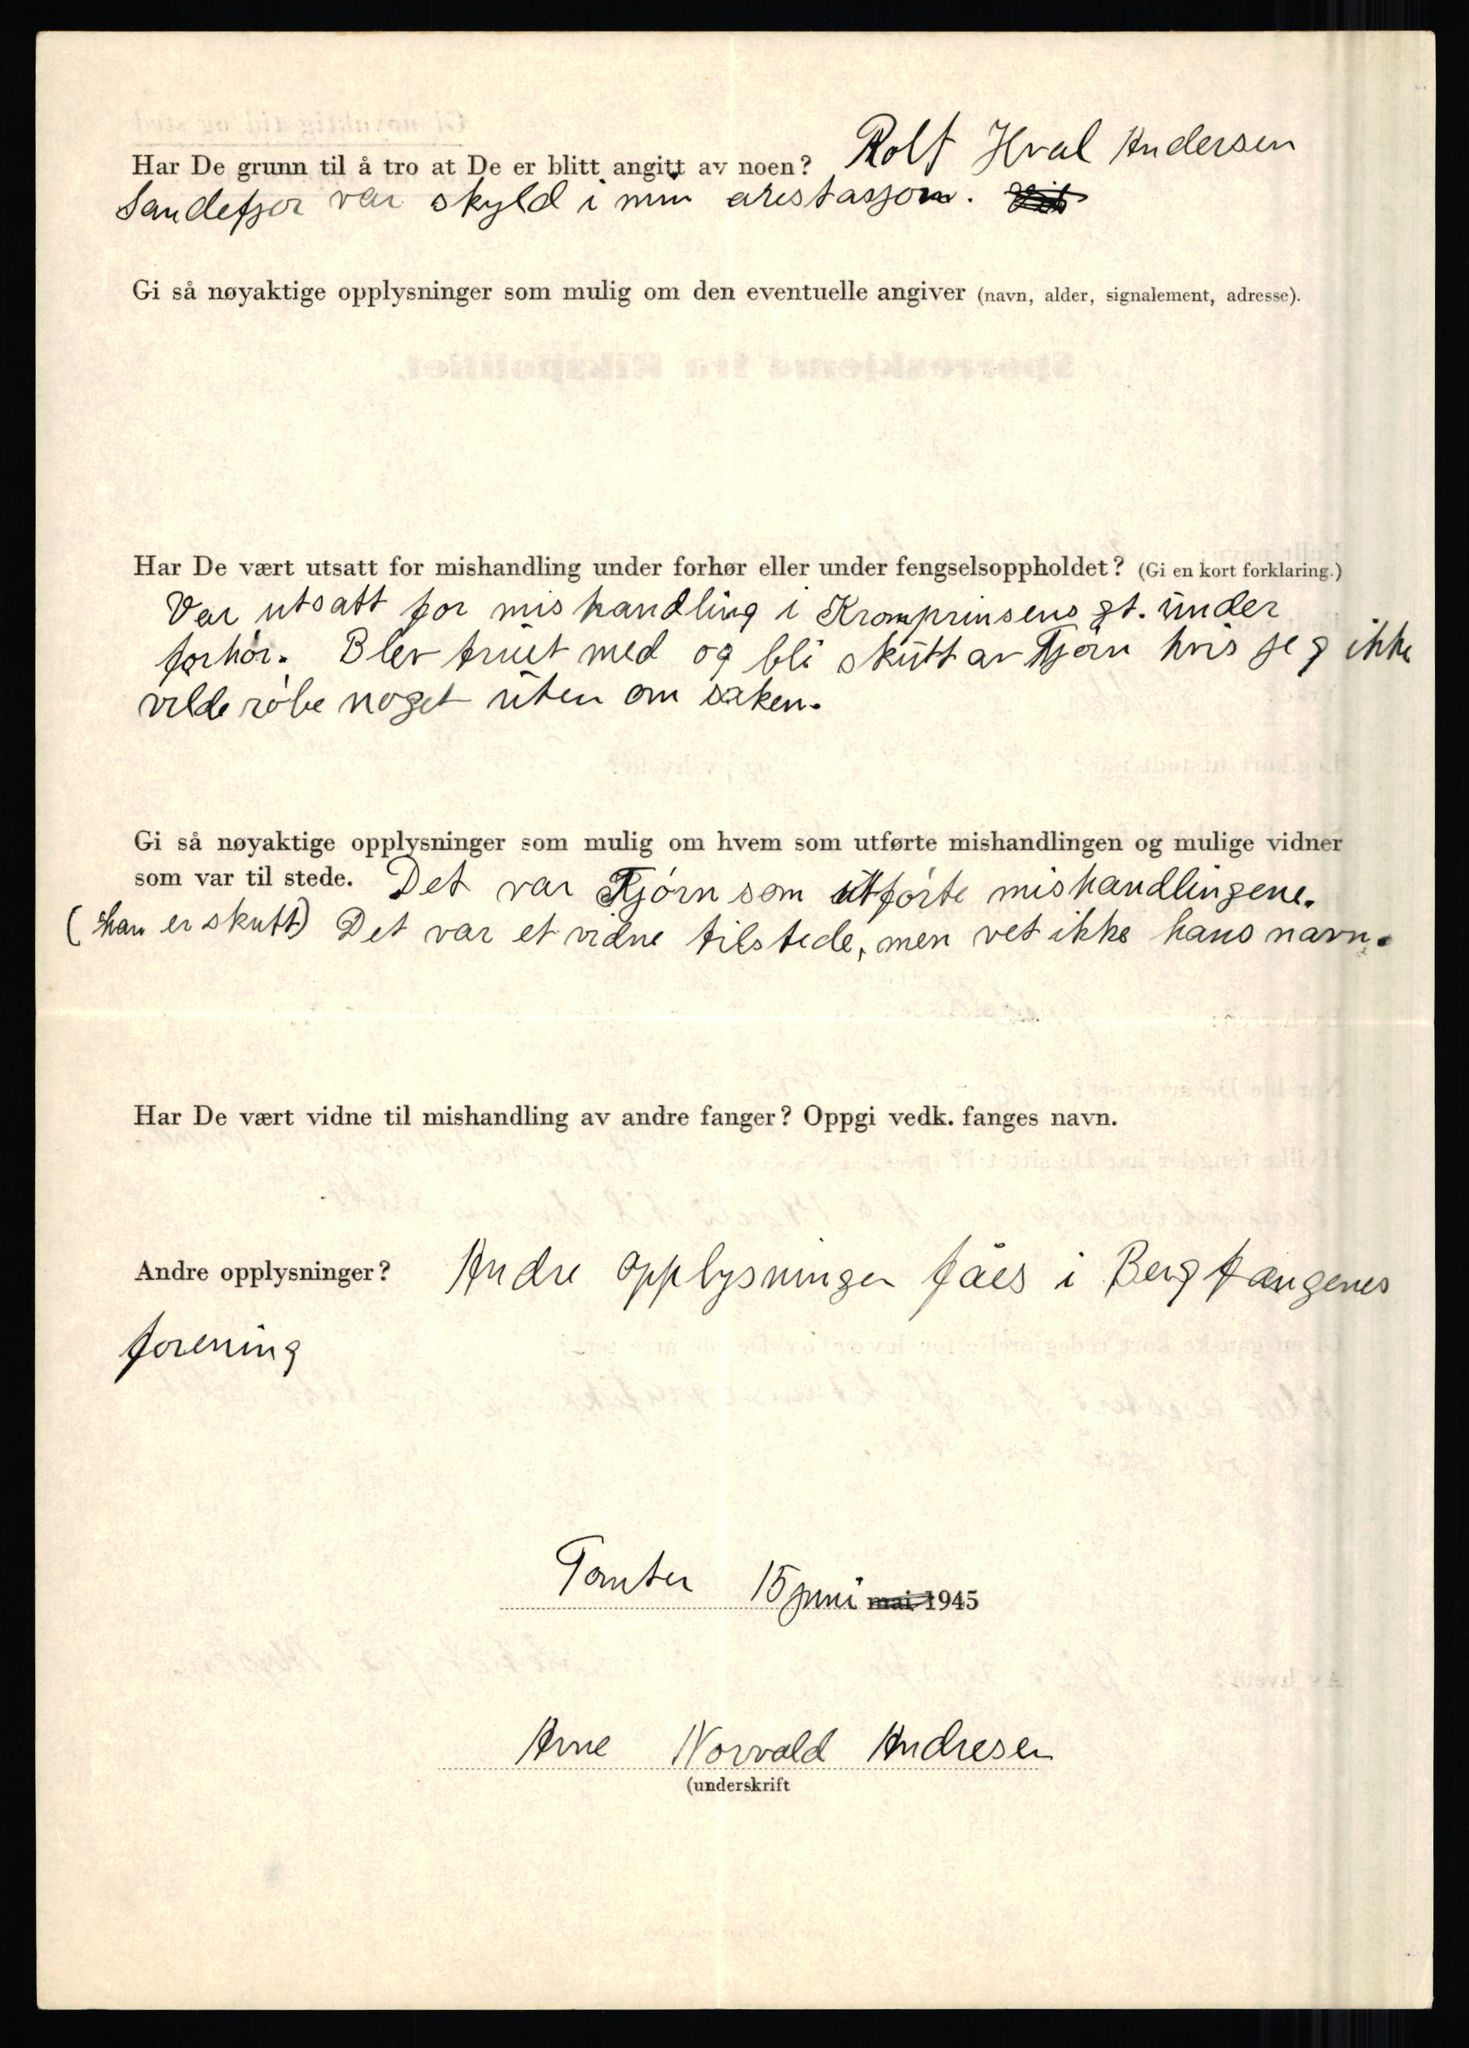 Har De grunn til å tro at De er blitt angitt av noen? Rolf Hval Andersen
Sandefjor var skyld i min arestasjon.
Gi så nøyaktige opplysninger som mulig om den eventuelle angiver (navn, alder, signalement, adresse).
Har De vært utsatt for mishandling under forhør eller under fengselsoppholdet? (Gi en kort forklaring.)
Var utsatt for mishandling i Kromprinsens gt. under
forhør. Blev truet med og bli skutt av Fjørn hvis jeg ikke
vilde røbe noget uten om saken.
Gi så nøyaktige opplysninger som mulig om hvem som utførte mishandlingen og mulige vidner
som var til stede. Det var Fjørn som utførte mishandlingene.
(han er skutt) Det var et vidne tilstede, men vet ikke hans navn.
Har De vært vidne til mishandling av andre fanger? Oppgi vedk. fanges navn.
Andre opplysninger? Andre opplysninger fåes i Bergfangenes
forening
Tomter 15 juni mai 1945
Arne Norvald Andresen
(underskrift